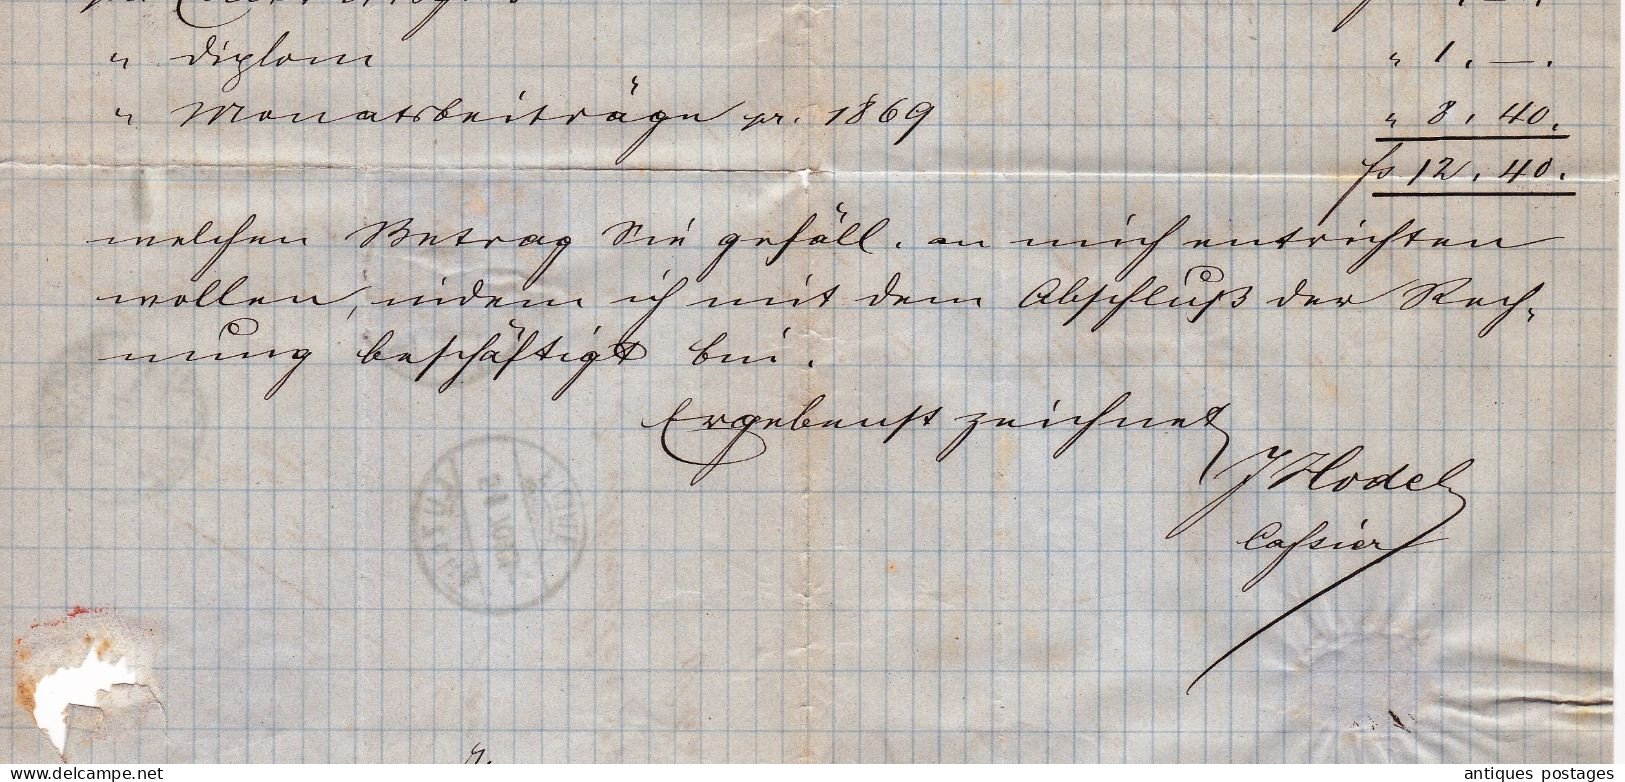 " Diplom " 1. —.
" Monatsbeiträge pr. 1869 " 8. 40.
fs 12. 40.
welchen Betrag Sie gefäll. an mich entrichten
wollen, indem ich mit dem Abschluß der Rech-
nung beschäftigt bin.
Ergebenst zeichnet
J Hodel
Cassier
delcampe.net
antiques postages